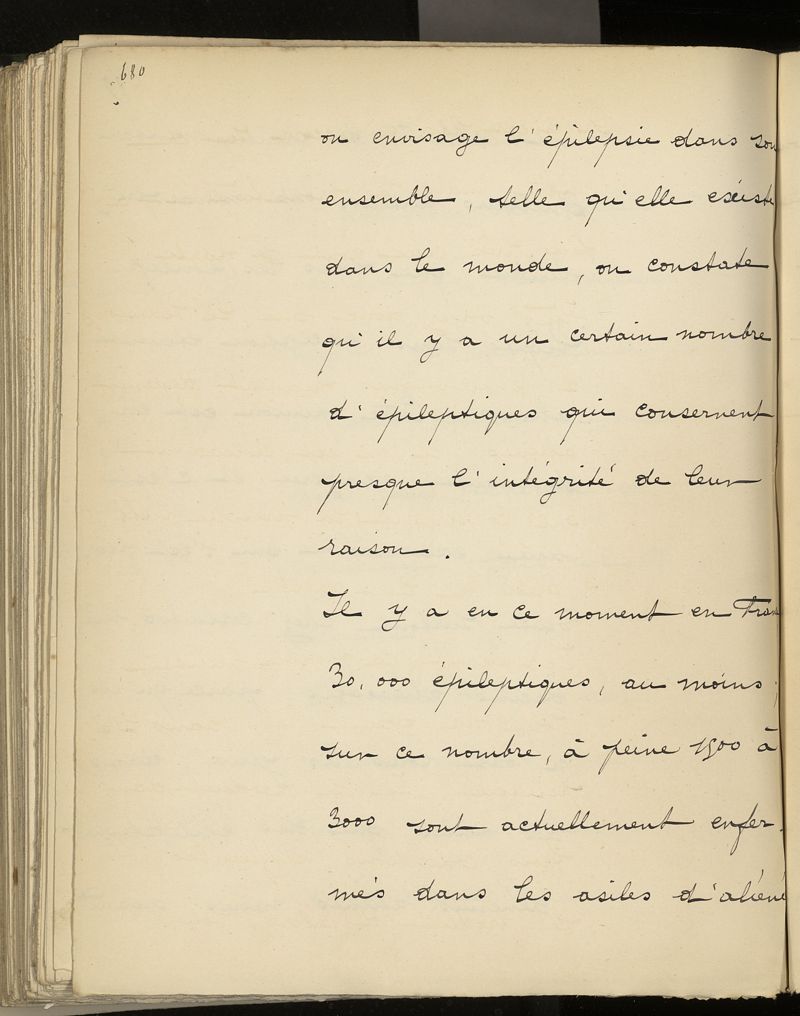 680
on envisage l'épilepsie dans son
ensemble, telle qu'elle existe
dans le monde, on constate
qu'il y a un certain nombre
d'épileptiques qui conservent
presque l'intégrité de leur
raison.
Il y a en ce moment en Fran
30,000 épileptiques, au moins;
sur ce nombre, à peine 1500 à
3000 sont actuellement enfer-
més dans les asiles d'aliéné